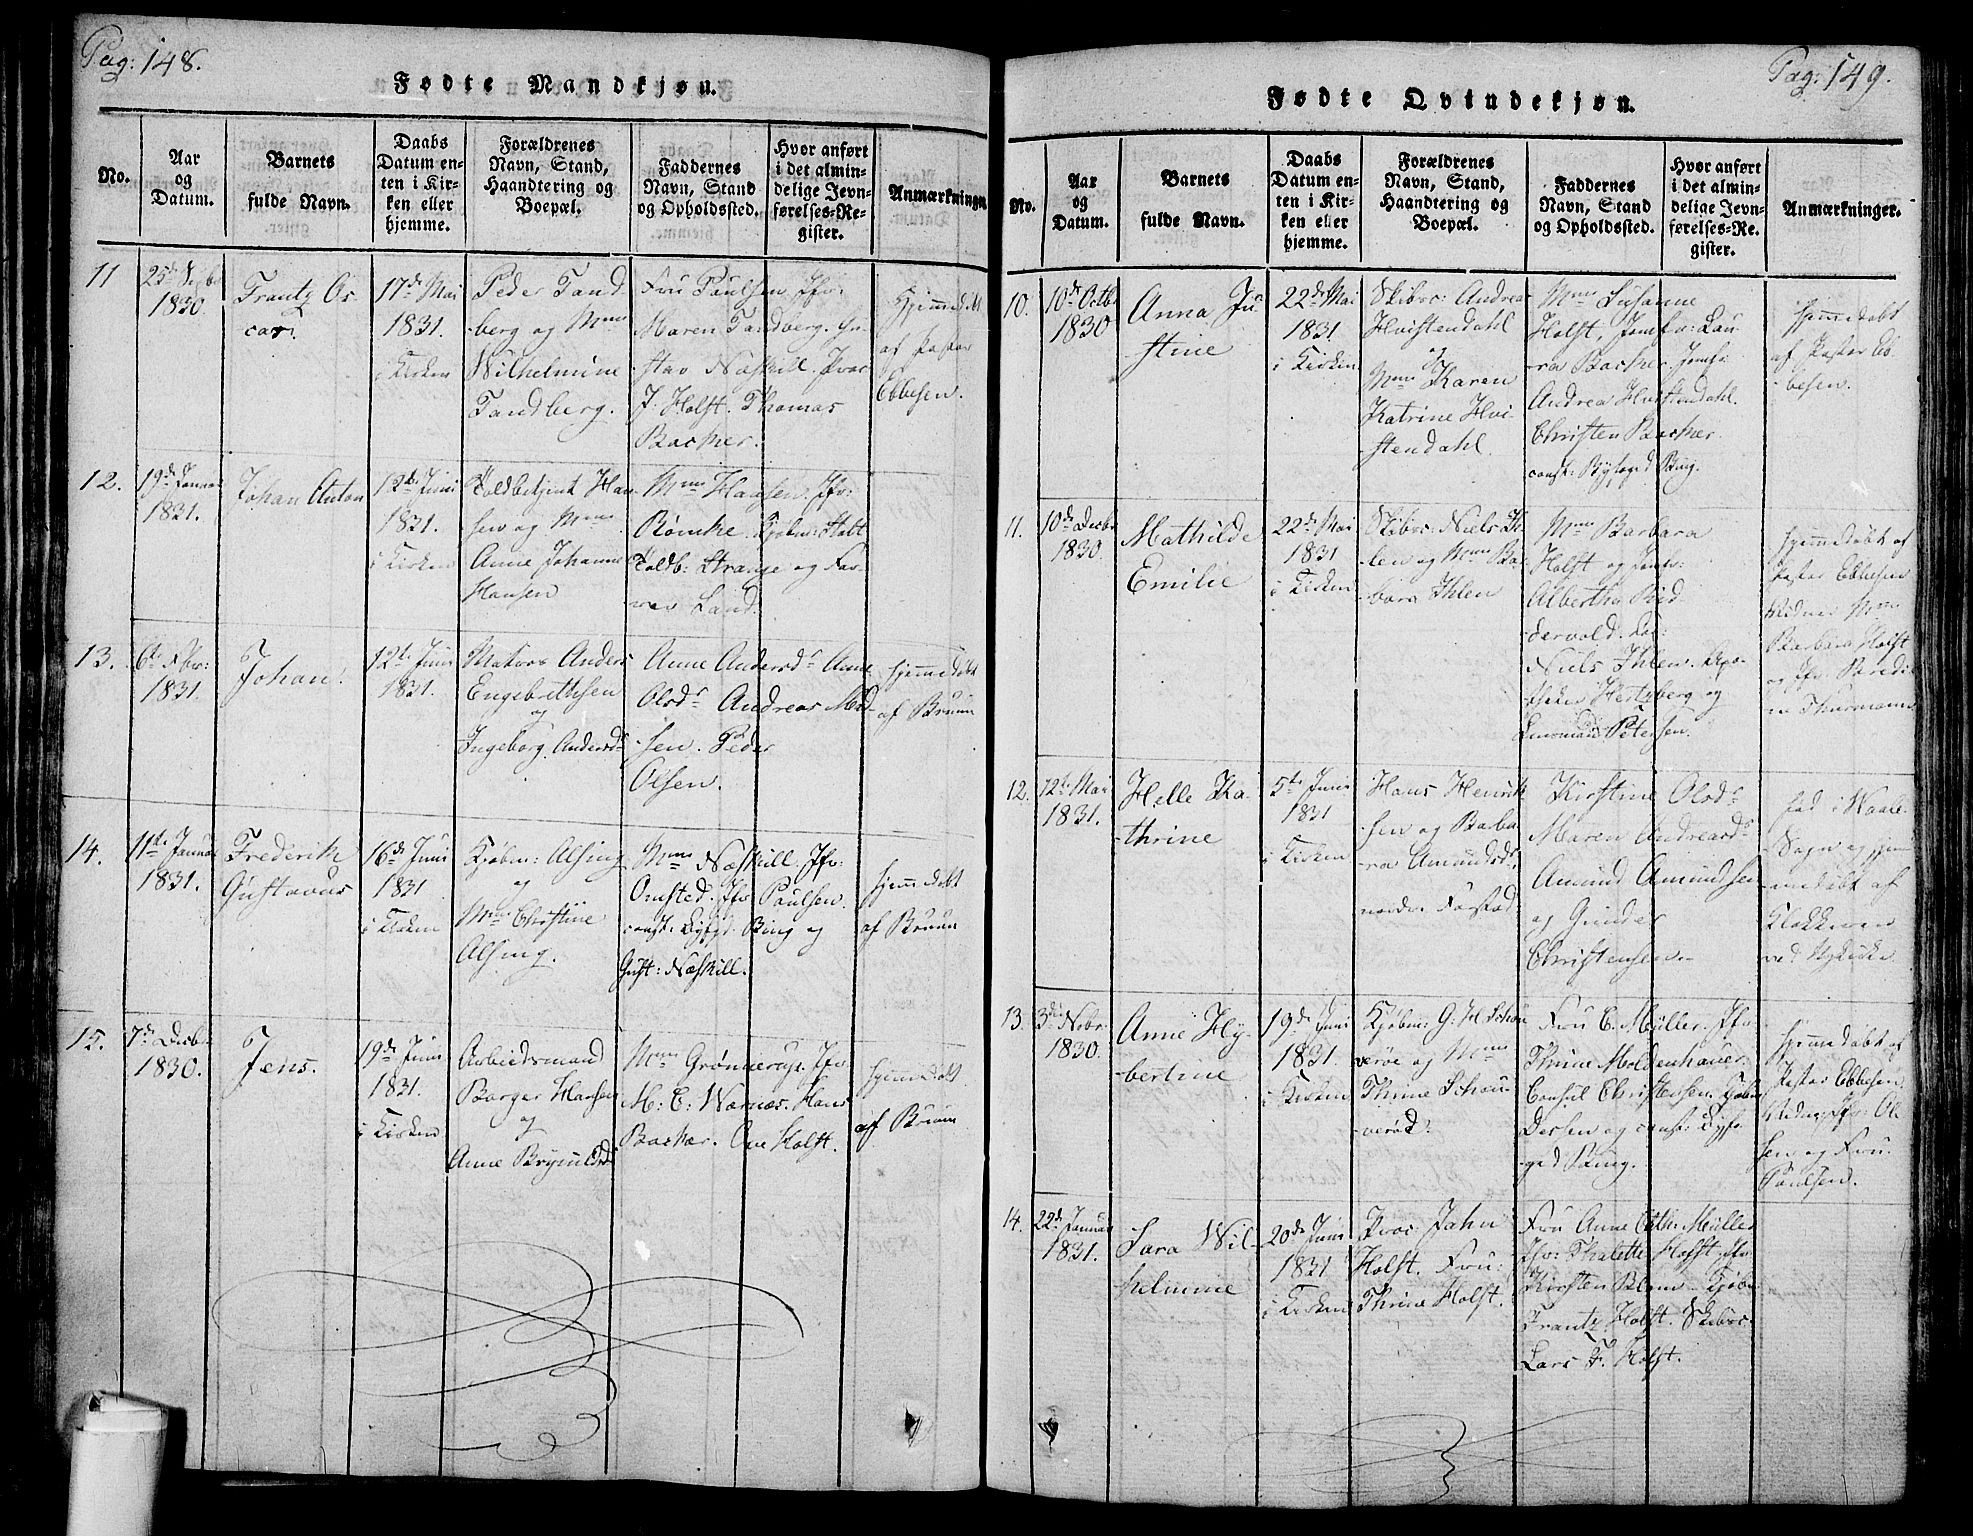 Pag: 148.
Fødte Mandkjøn.
No.
Aar
og
Datum.
Barnets
fulde Navn.
Daabs
Datum en-
ten i Kir-
ken eller
hjemme.
Forældrenes
Navn, Stand,
Haandtering og
Boepæl.
Faddernes
Navn, Stand
og Opholdssted.
Hvor anført
i det almin-
delige Jevn-
førelses-Re-
gister.
Anmærkninger.
11
25de
1830.
Frantz Os-
car.
17de Mai
1831.
i Kirken
Peder Tand-
berg og Mme
Wilhelmine
Tandberg.
Fru Paulsen. Jfr:
Maren Tandberg. Gu-
stav Næskill. Proc
J. Holst. Thomas
Backer.
Hjemmedøbt
af Pastor
Ebbesen.
12.
19de Januar
1831.
Johan Anton
12te Juni
1831.
i Kirken
Toldbetjent Han-
sen og Mme
Anne Johanne
Hansen
Mme Hansen. Jfr:
Rømcke. Kjøbm: Stolt
Toldb: Strange og Far-
ver Land.
13.
6te
1831.
Johan.
12te Juni
1831.
Matros Anders
Engebrethsen
og
Ingeborg Andersdr
Anne Andersdr Anne
Olsdr Andreas Mad-
sen. Peder
Olsen.
Hjemmedøbt
af Bruun
14.
11te Januar
1831.
Frederik
Gustavus
16de Juni
1831
i Kirken
Kjøbm: Alsing
og
Mme Christine
Alsing.
Mme Næskill. Jfr.
Omsted. Jfr Paulsen.
const: Byfgd. Bing og
Gust: Næskill.
Hjemmedøbt
af Bruun
15.
7de Decbr
1830.
Jens.
19de Juni
1831.
i Kirken
Arbeidsmand
Børger Hansen
og
Anne Brynildsdr
Mme Grønnerup. Jfr
M: C: Warnæs. Hans
Backer. Ove Holst.
Hjemmedøbt
af Bruun
Pag: 149.
Fødte Qvindekjøn.
No.
Aar
og
Datum.
Barnets
fulde Navn.
Daabs
Datum en-
ten i Kir-
ken eller
hjemme.
Forældrenes
Navn, Stand,
Haandtering og
Boepæl.
Faddernes
Navn, Stand
og Opholdssted.
Hvor anført
i det almin-
delige Jevn-
førelses-Re-
gister.
Anmærkninger.
10.
10de Octbr
1830
Anna Ju-
stine
22de Mai
1831.
i Kirken
Skibsc: Andreas
Hvistendahl
og
Mme Karen
Katrine Hvi-
stendahl.
Mme Susanne
Holst, Jomfr: Lau-
ra Backer. Jomfr:
Andrea Hvistendahl.
Christen Backer.
const: Byfoged Bing.
Hjemmedøbt
af Pastor Eb-
besen.
11.
10de Decbr
1830.
Mathilde
Emilie
22de Mai
1831
i Kirken
Skibsc: Niels Ih-
len og Mme Bar-
bara Ihlen
Mme Barbara
Holst og Jomfr:
Albertha Rid-
dervold.
Niels Ihlen. Apo-
theker Hertzberg og
Lensmand Petersen.
Hjemmedøbt af
Pastor Ebbesen
Vidner Mme
Barbara Holst
og Jfr.
Thurmann
12.
12te Mai
1831.
Helle Ka-
thrine
5te Juni
1831
i Kirken
Hans Henrik-
sen og Barba-
ra Amundsdr
nordre Forstad.
Kirstine Olsdr
Maren Andreasdr
Amund Amundsen
og Gunder
Christensen.
fød i Waale
Sogn og hjem-
medøbt af
Klokkeren
ved
13.
3die Nobr
1830.
Anne Hy-
bertine
19de Juni
1831.
i Kirken
Kjøbm: G: H. Schou-
verøe og Mme
Thrine Schou-
verøe.
Fru C. Müller. Jfr
Thrine Moldenhauer.
Consul Christensen.
og const: Byfo-
ged Bing.
Hjemmedøbt af
Pastor Ebbesen.
Vidner Jfr: Ol-
sen og Fru
Paulsen.
14.
22de Januar
1831.
Sara Wil-
helmine
20de Juni
1831
i Kirken
Proc: John
Holst. Fru:
Thrine Holst.
Fru Anne Cath: Müller
Jfr: Thalette Holst. Jfr.
Kirsten Blom. Kjøbm:
Frantz Holst. Skibsc:
Lars F. Holst.